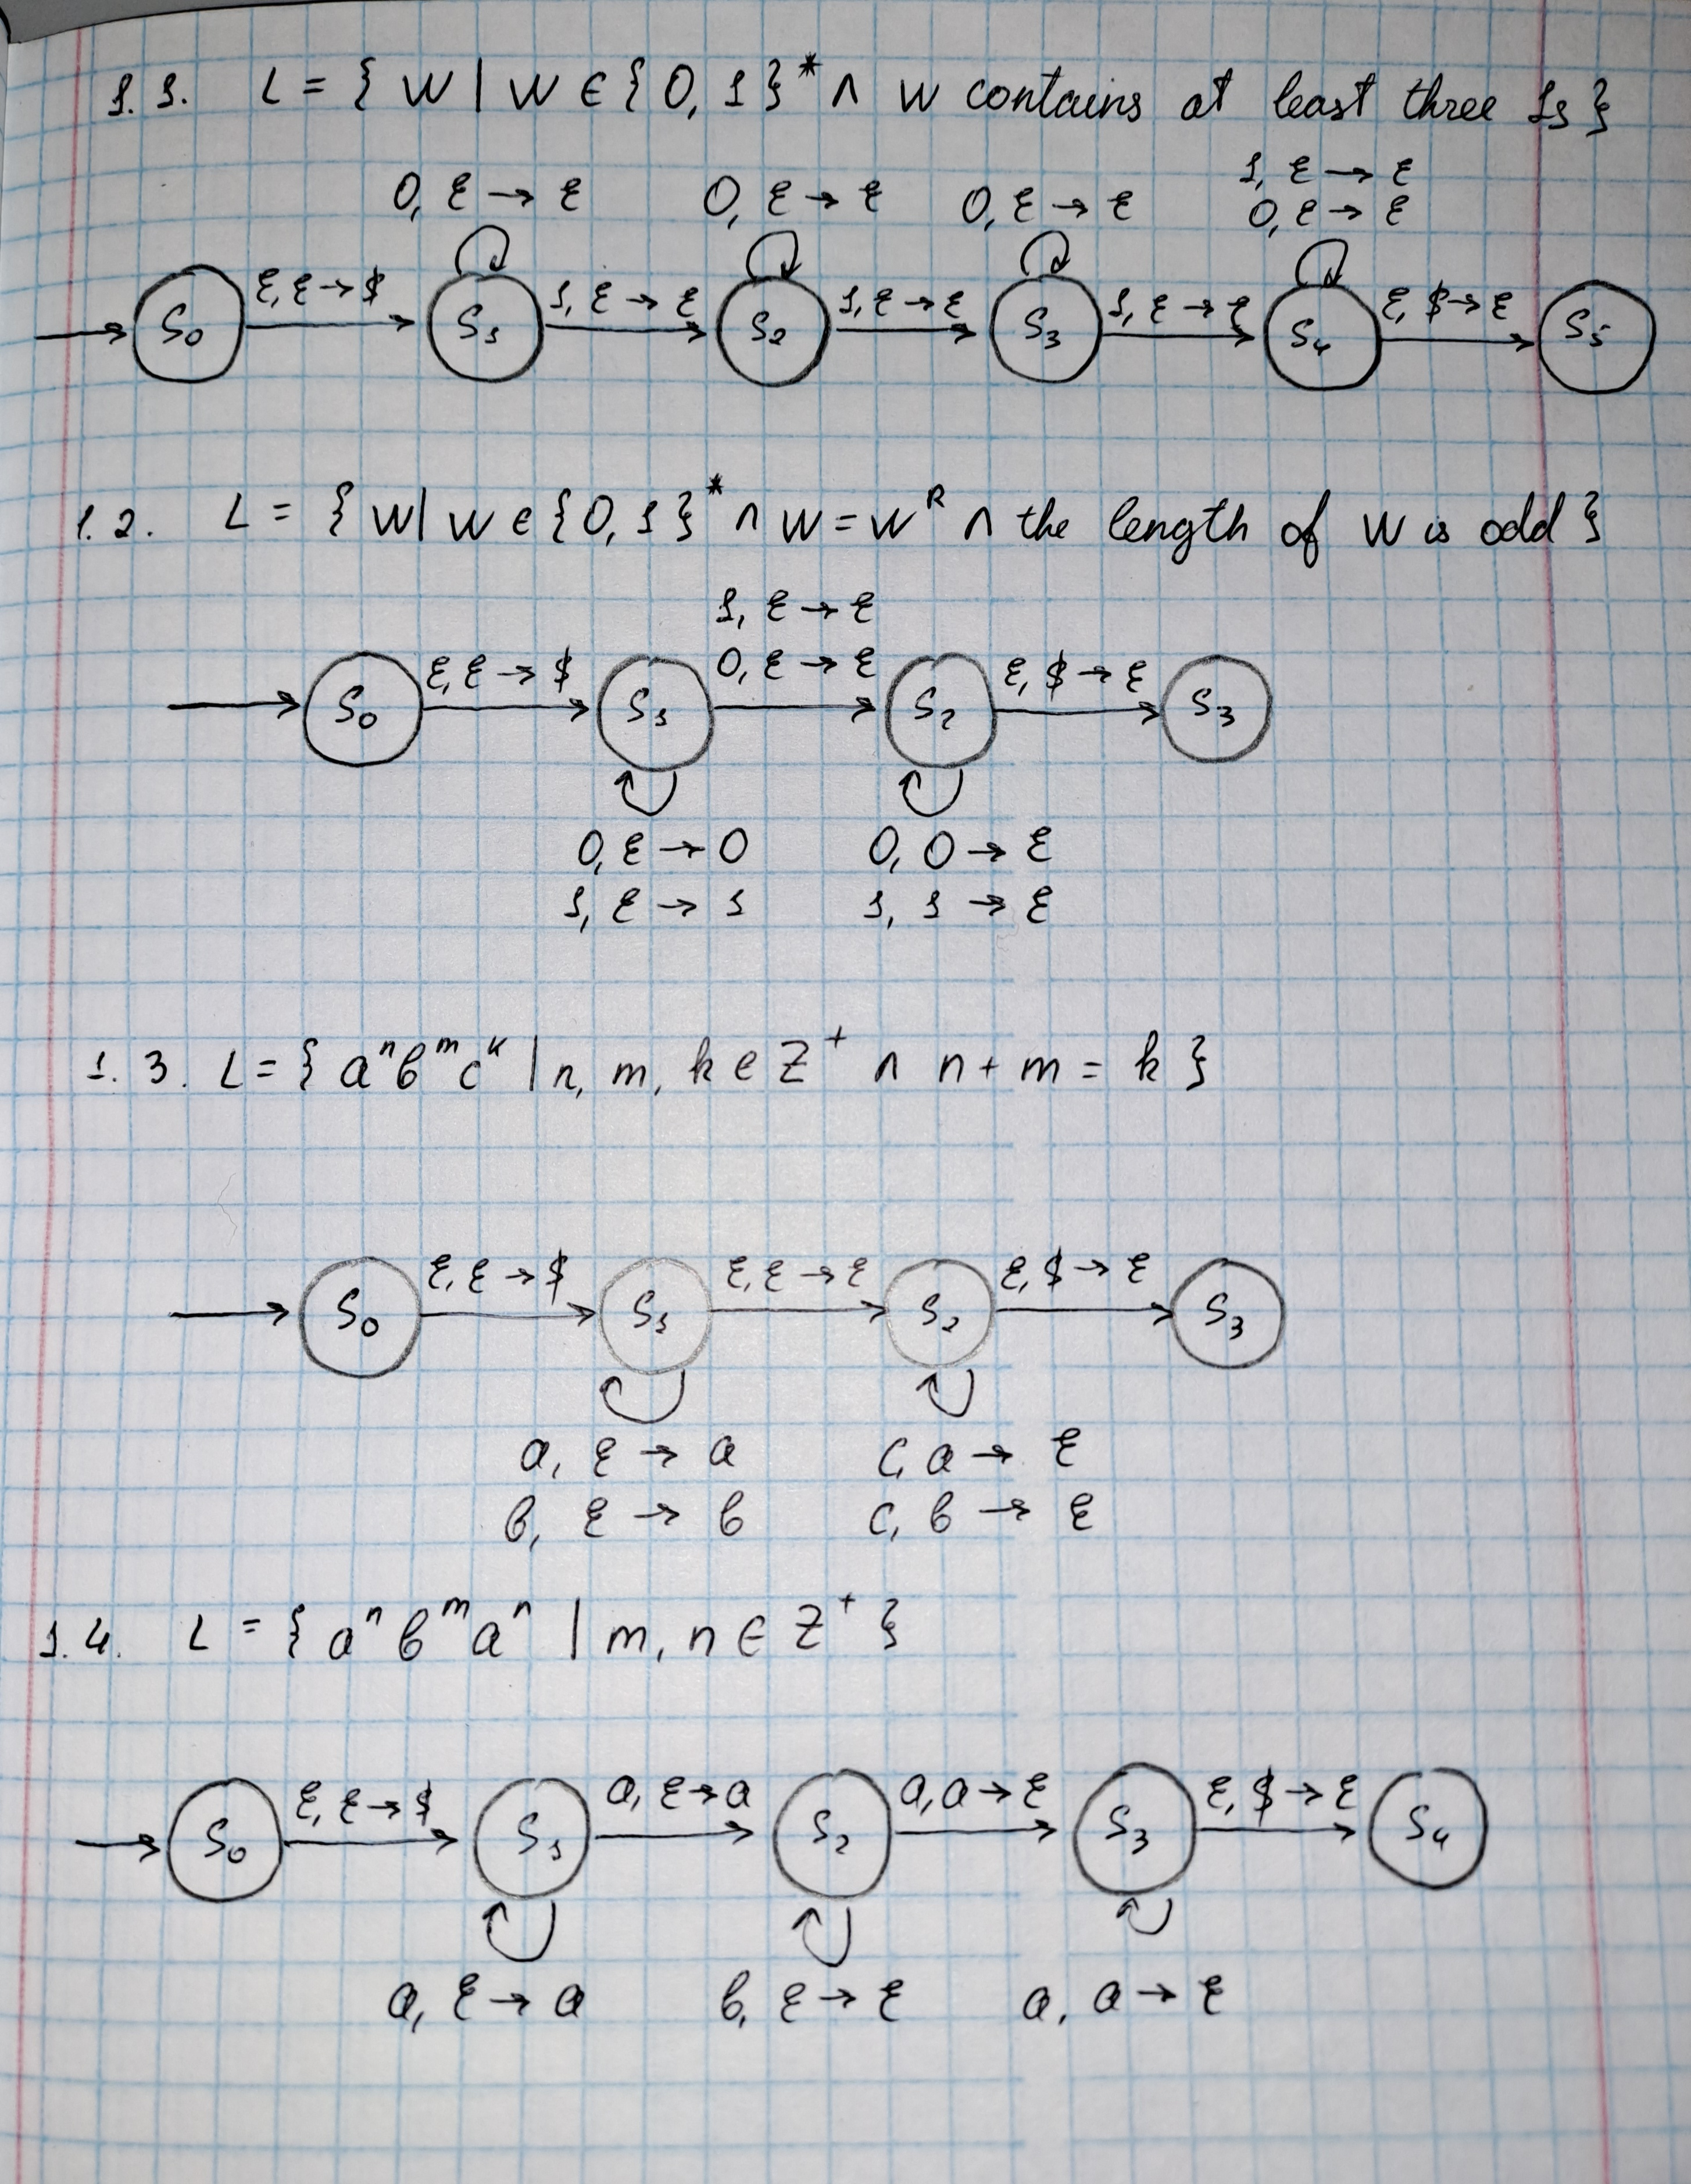 1.1. L = { w | w ∈ {0, 1}* ∧ w contains at least three 1s }
1, ε → ε
0, ε → ε 0, ε → ε 0, ε → ε 0, ε → ε
S₀ ε, ε → $ S₁ 1, ε → ε S₂ 1, ε → ε S₃ 1, ε → ε S₄ ε, $ → ε S₅
1.2. L = { w | w ∈ {0, 1}* ∧ w = wᴿ ∧ the length of w is odd }
1, ε → ε
0, ε → ε
S₀ ε, ε → $ S₁ S₂ ε, $ → ε S₃
0, ε → 0 0, 0 → ε
1, ε → 1 1, 1 → ε
1.3. L = { aⁿ bᵐ cᵏ | n, m, k ∈ Z⁺ ∧ n + m = k }
S₀ ε, ε → $ S₁ ε, ε → ε S₂ ε, $ → ε S₃
a, ε → a c, a → ε
b, ε → b c, b → ε
1.4. L = { aⁿ bᵐ aⁿ | m, n ∈ Z⁺ }
S₀ ε, ε → $ S₁ a, ε → a S₂ a, a → ε S₃ ε, $ → ε S₄
a, ε → a b, ε → ε a, a → ε